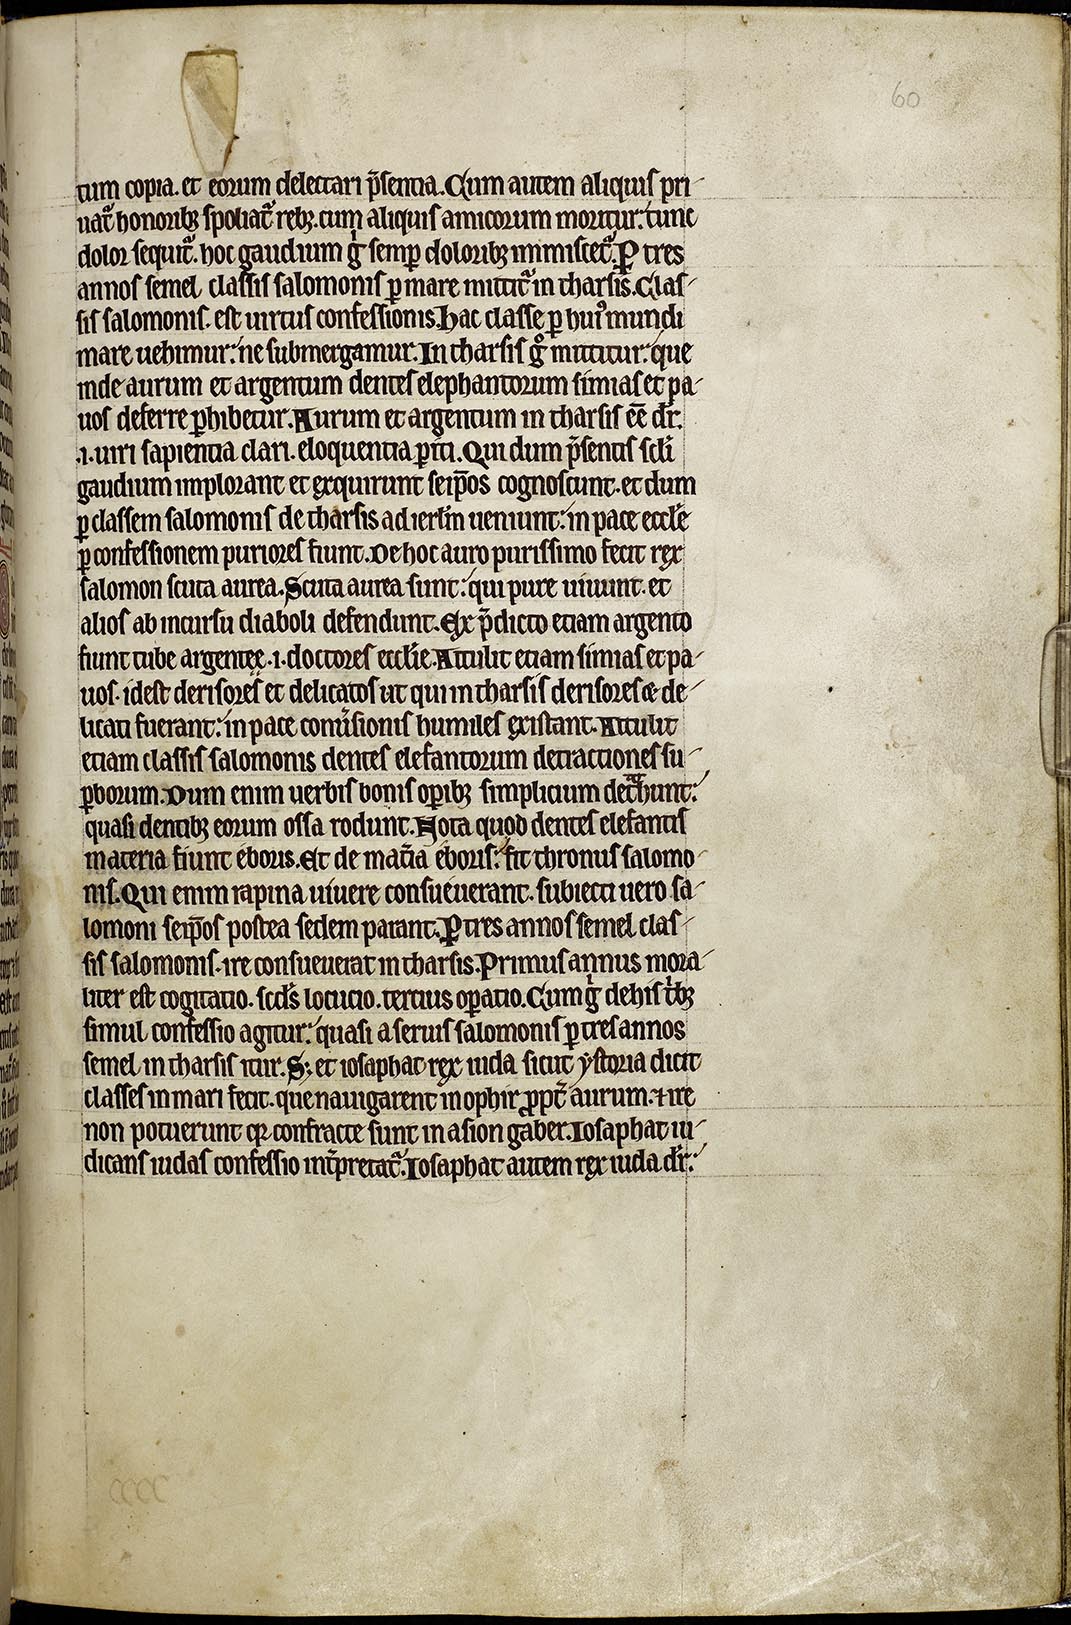 60
tum copia. et eorum delectari p̄sentia. Cum autem aliquis pri-
uat᷑ honoribꝫ spoliat᷑ rebꝫ. cum aliquis amicorum moritur: tunc
dolor sequit᷑. hoc gaudium gͥ semꝑ doloribꝫ inmiscet᷑. Ꝑ tres
annos semel classis salomonis ꝑ mare mittit᷑ in tharsis. Clas-
sis salomonis. est uirtus confessionis. Hac classe ꝑ huiꝰ mundi
mare uehimur: ne submergamur. In tharsis gͦ mittitur: que
inde aurum et argentum dentes elephantorum simias et pa-
uos deferre ꝑhibetur. Aurum et argentum in tharsis eē dr̄.
.i. uiri sapientia clari. eloquentia ꝑiti. Qui dum p̄sentis scl̄i
gaudium implorant et exquirunt seip̄os cognoscunt. et dum
ꝑ classem salomonis de tharsis ad ierl̄m ueniunt: in pace eccl̄e
ꝑ confessionem puriores fiunt. De hoc auro purissimo fecit rex
salomon scuta aurea. Scuta aurea sunt: qui pure uiuunt. et
alios ab incursu diaboli defendunt. Ex p̄dicto etiam argento
fiunt tube argentee .i. doctores eccl̄ie. Attulit etiam simias et pa-
uos. id est derisores et delicatos ut qui in tharsis derisores & de-
licati fuerant: in pace conuersionis humiles existant. Attulit
etiam classis salomonis dentes elefantorum detractiones su-
ꝑborum. Dum enim uerbis bonis oꝑibꝫ simplicium detᵃhunt:
quasi dentibꝫ eorum ossa rodunt. Nota quod dentes elefantis
materia fiunt eboris. Et de mat̄ia eboris: fit thronus salomo-
nis. Qui enim rapina uiuere consueuerant. subiecti uero sa-
lomoni seip̄os postea sedem parant. Ꝑ tres annos semel clas-
sis salomonis. ire consueuerat in tharsis. Primus annus mora-
liter est cogitatio. scd̄s locucio. tertius oꝑatio. Cum gͥ de his tͥbꝫ
simul confessio agitur: quasi a seruis salomonis ꝑ tres annos
semel in tharsis itur. Sꝫ et iosaphat rex iuda sicut ystoria dicit
classes in mari fecit. que nauigarent in ophir ꝓpt̄ aurum. ⁊ ire
non potuerunt qꝛ confracte sunt in asion gaber. Iosaphat iu-
dicans iudas confessio int̄pretat᷑. Iosaphat autem rex iuda dr̄:
cccc